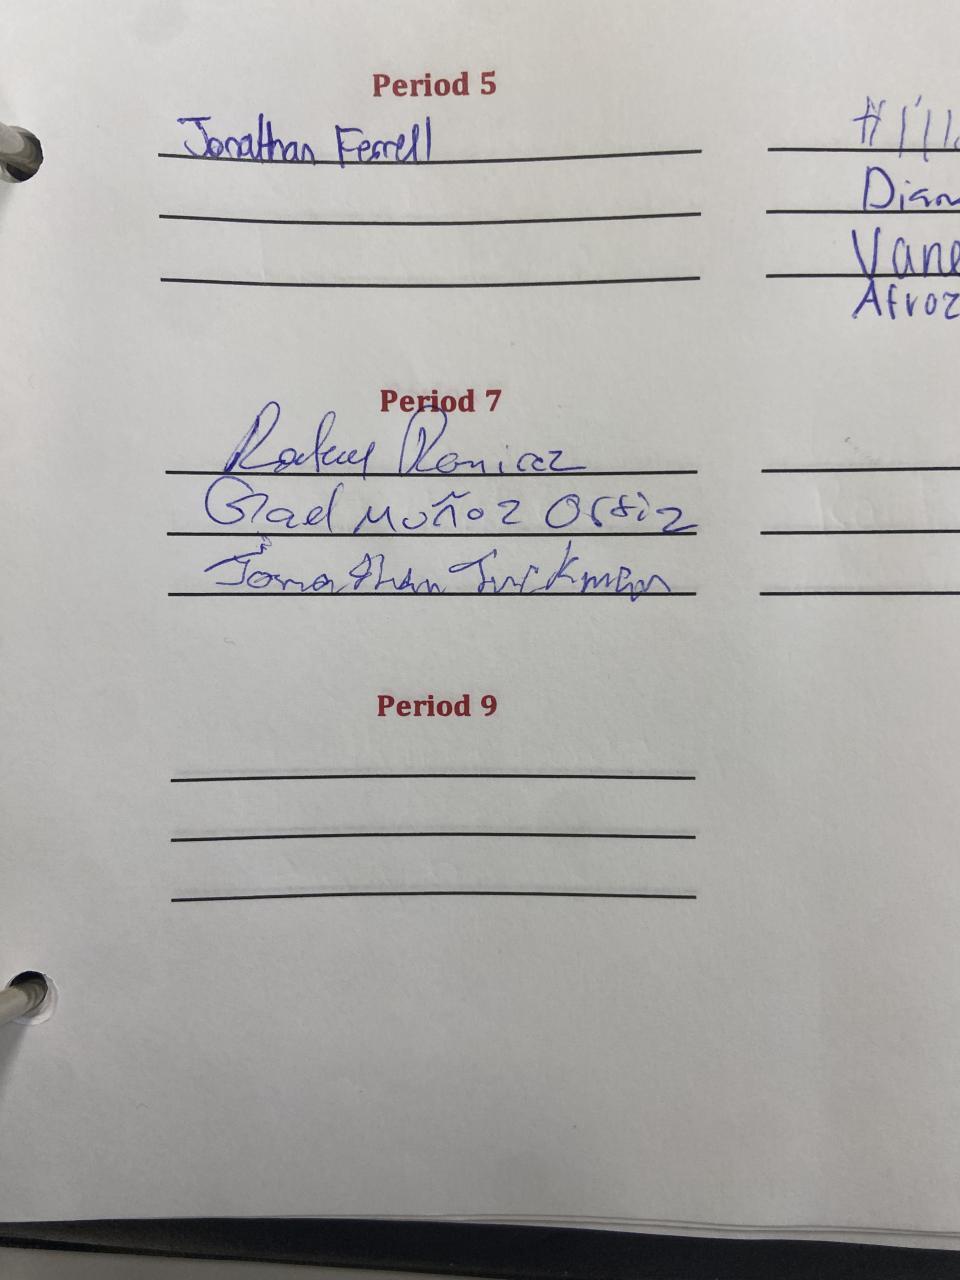 Period 5
Jonathan Ferrell
Dian
Vane
Afroz
Period 7
Rafael Ramirez
Gael Muñoz Ortiz
Jonathan Turkman
Period 9